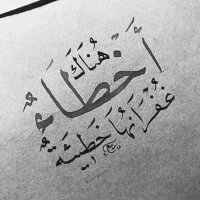 هُنَاكَ
أَخْطَاءٌ
غُفْرَانُهَا خَطِيئَة